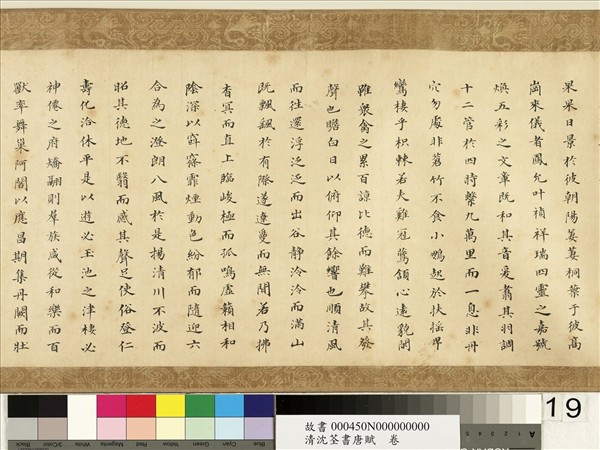 杲杲日景於彼朝陽萋萋桐葉于彼高
崗來儀者鳳允叶禎祥瑞四靈之嘉號
煥五彩之文章既和其音爰翥其羽調
十二管於四時擊九萬里而一息非丹
穴勿處非翠竹不食小鷃起於扶搖卑
鸞棲乎枳棘若夫雞冠鷰頷心遠貌閑
雖衆禽之累百諒比德而難攀故其發
聲也瞻白日以俯仰其餘響也順清風
而往還浮泛泛而出谷靜泠泠而滿山
既飄颻於有際遂遼敻而無聞若乃拂
杳冥而直上臨峻極而孤鳴虛籟相和
陰深以窅窱霏煙動色紛郁而隨迎六
合為之澄朗八風於是揚清川不波而
昭其德地不翳而感其聲足使俗登仁
壽化洽休平是以遊必玉池之津棲必
神僊之府矯翮則羣族咸從和樂而百
獸率舞巢阿閣以應昌期集丹闕而壯
19
故書 000450N000000000
清沈荃書唐賦 卷
Black
3/Color
White
Magenta
Red
Yellow
Green
Cyan
Blue